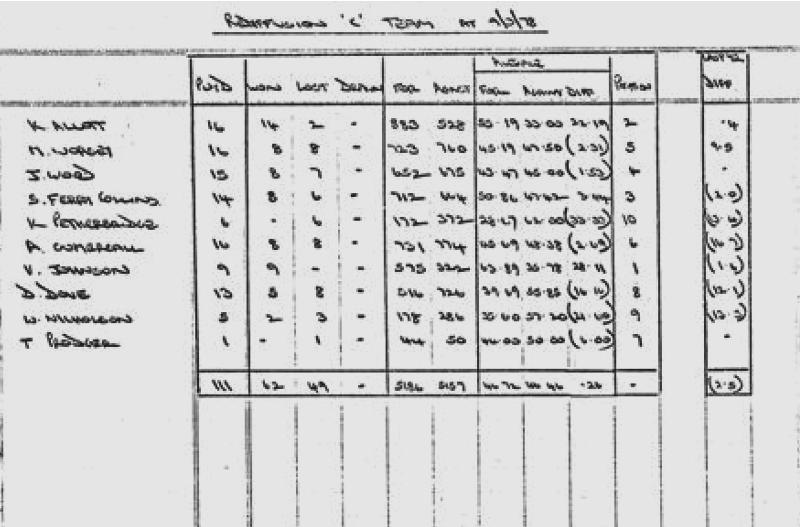 REDIFFUSION 'C' TEAM AT 9/3/78
AVERAGE LAST YR
PLYD WON LOST DRAWN FOR AGNST FOR AGAINST DIFF POSITION DIFF
K. ALLOTT 16 14 2 - 883 528 55-19 33-00 22-19 2
M. WORGEY 16 8 8 - 723 760 45-19 47-50 (2-31) 5
J. WORD 15 8 7 - 652 675 43-47 45-00 (1-53) 4 -
S. FERRY COLLINS 14 8 6 - 712 664 50-86 47-42 3-44 3
K PETHERBRIDGE 6 - 6 - 172 372 28-67 62-00 (33-33) 10
A. 16 8 8 - 731 774 45-69 48-38 (2-69) 6
V. JOHNSON 9 9 - - 575 322 63-89 35-78 28-11 1
D. DOVE 13 5 8 - 516 726 39-69 55-85 (16-16) 8
W. NICHOLSON 5 2 3 - 178 286 35-60 57-20 (21-60) 9
T PRODGER 1 - 1 - 44 50 44-00 50-00 (6-00) 7 -
111 62 49 - 5186 5157 46-72 46-46 -26 - (2-5)